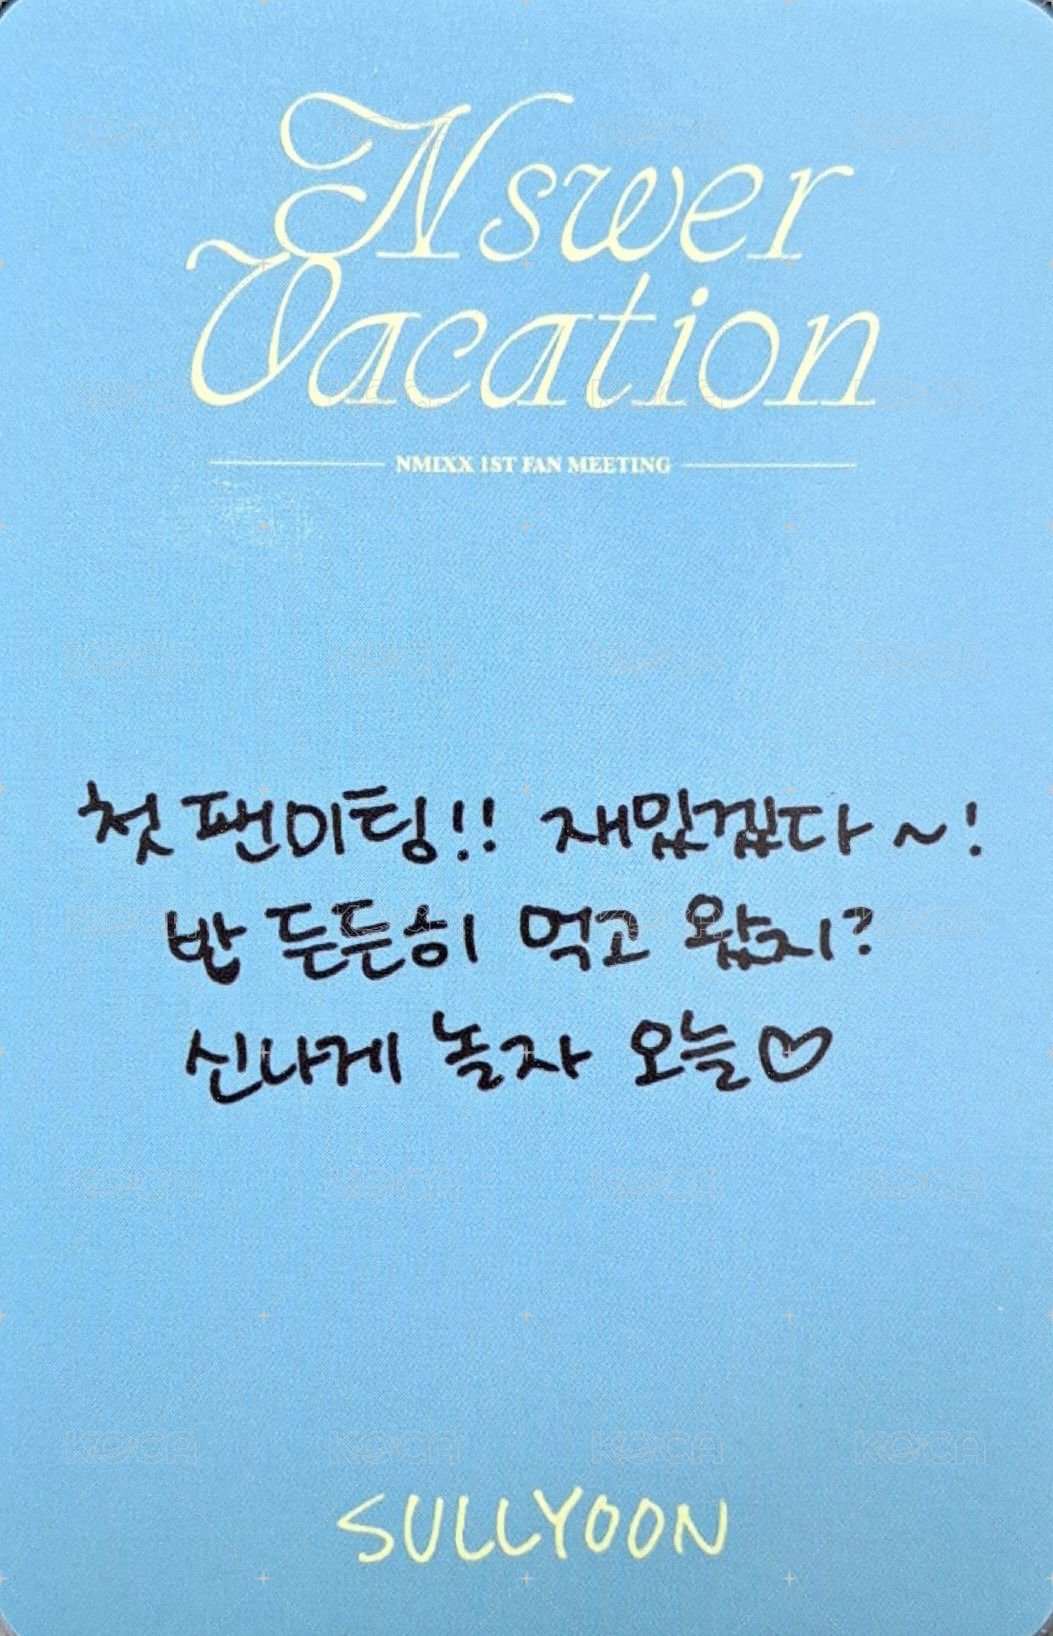 Nswer
Vacation
NMIXX 1ST FAN MEETING
첫 팬미팅!! 재밌겠다~!
밥 든든히 먹고 왔지?
신나게 놀자 오늘♡
SULLYOON
KOCA KOCA KOCA KOCA